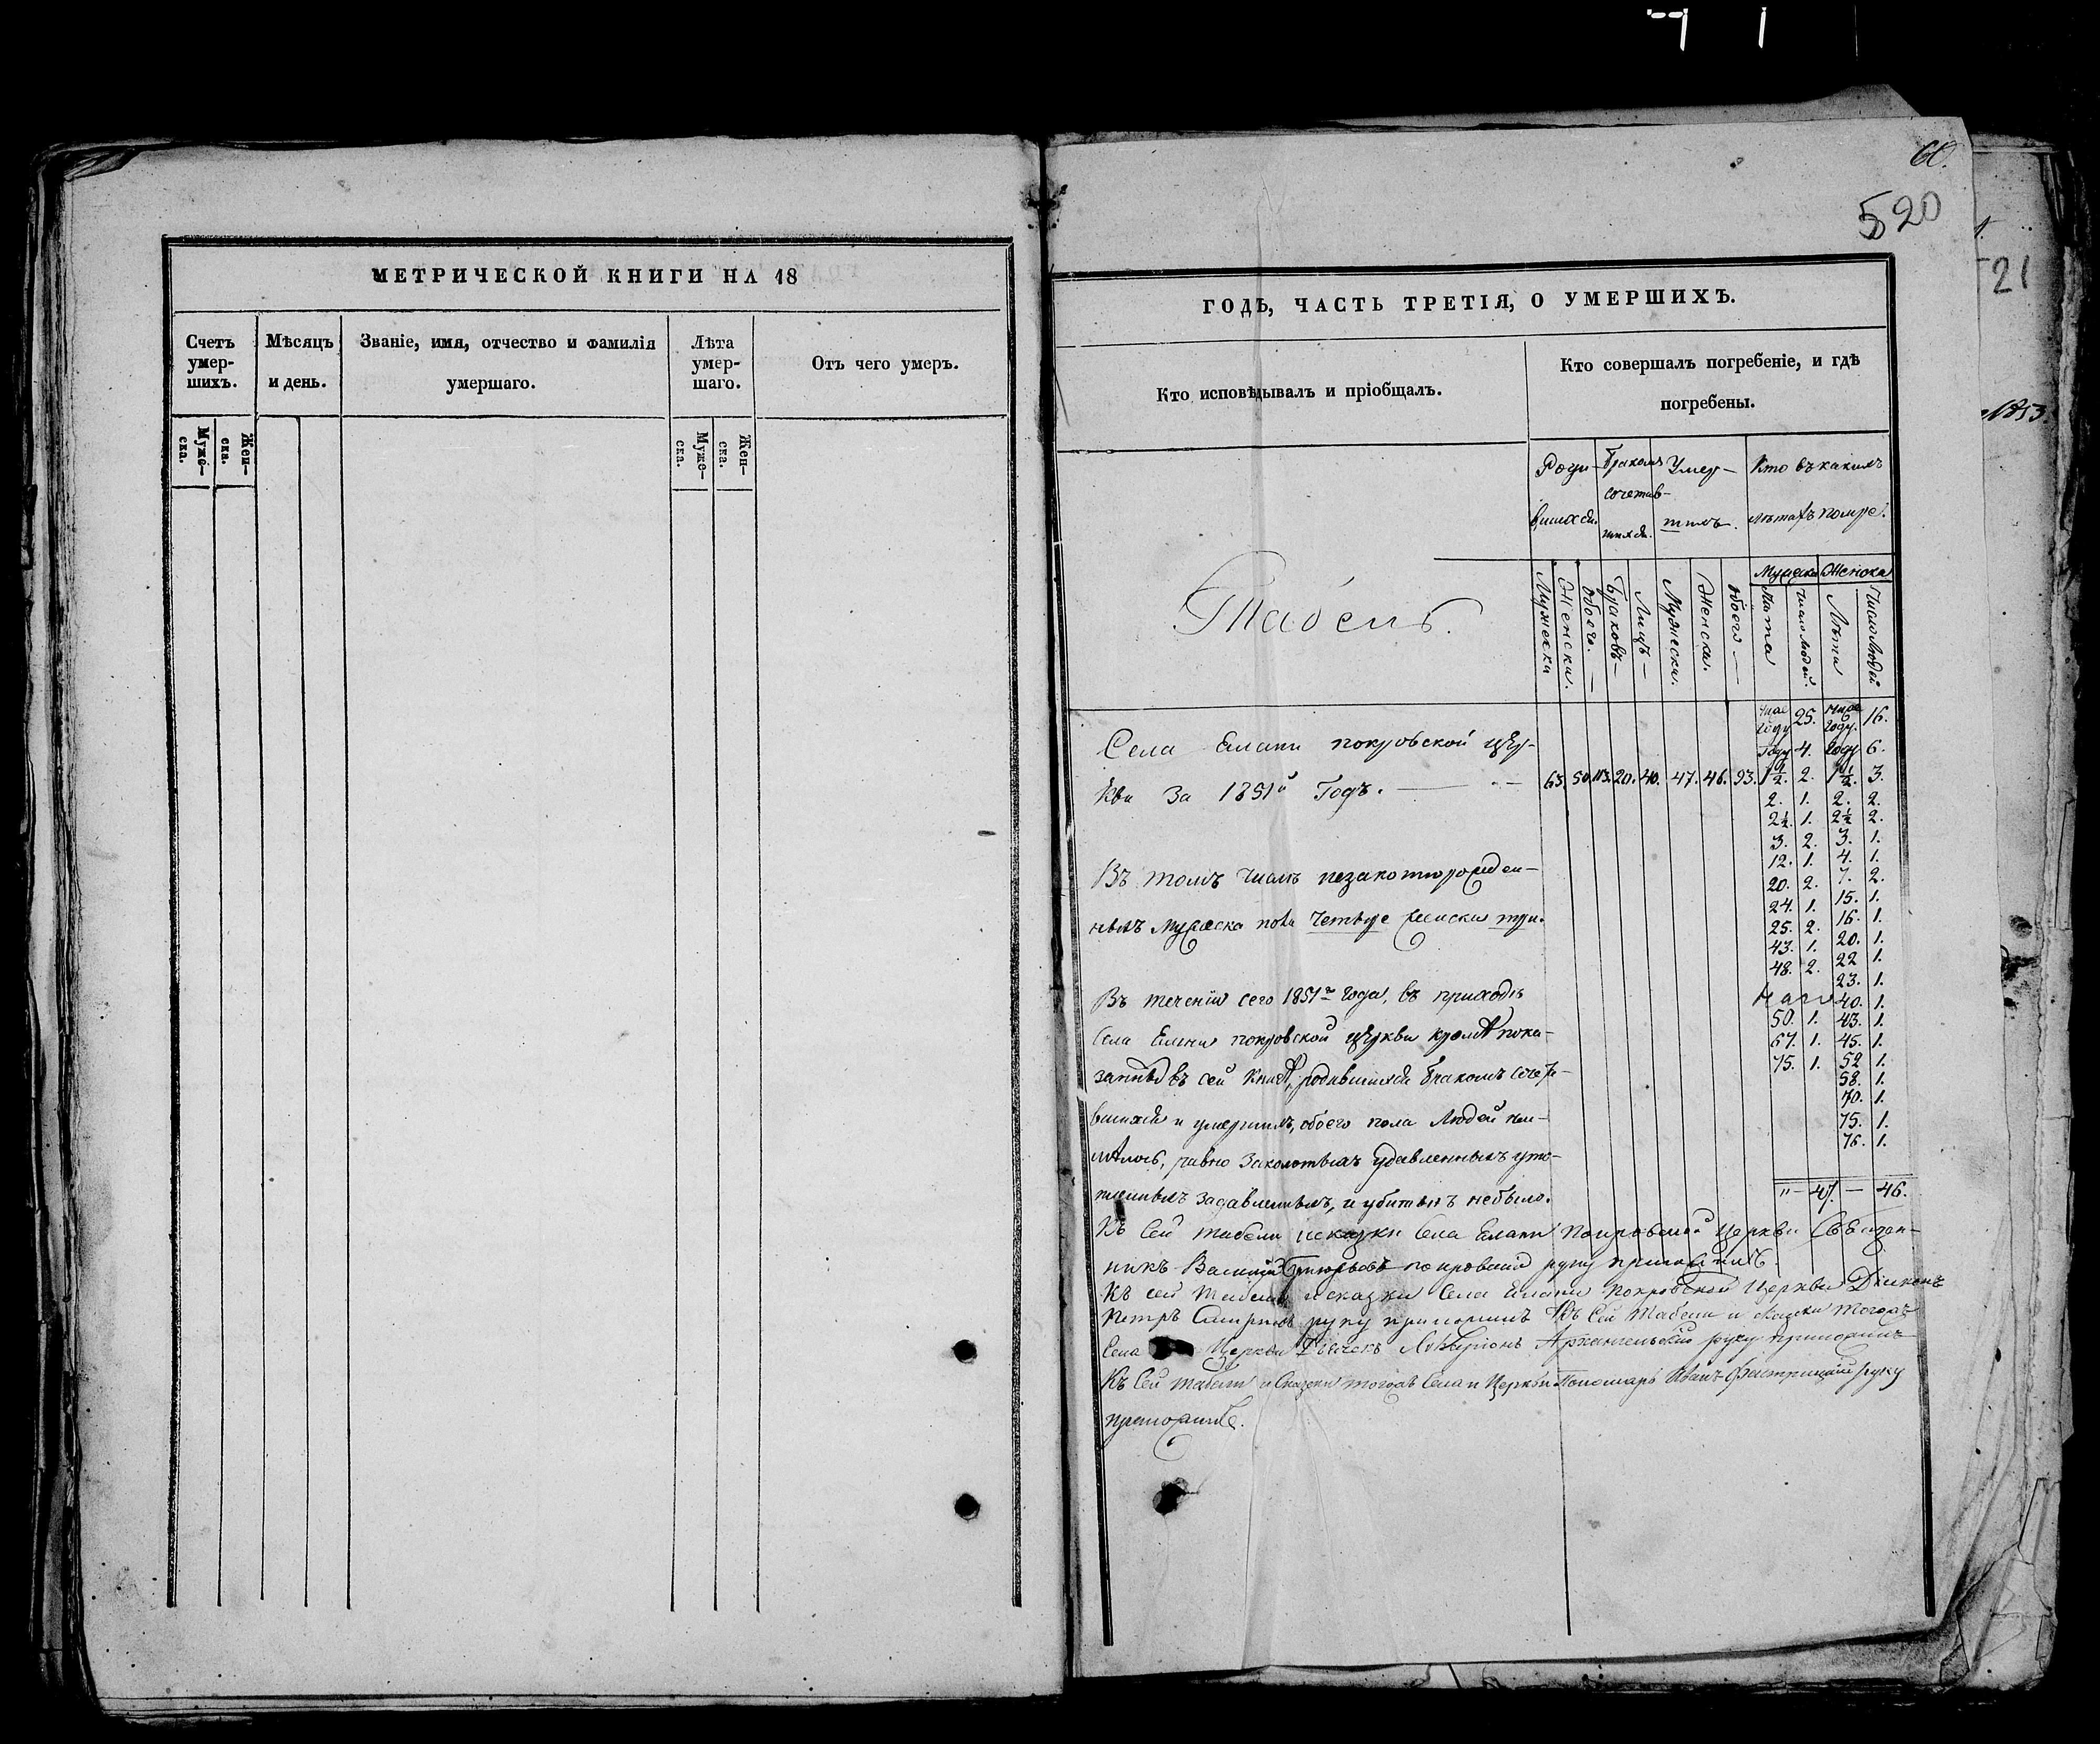 МЕТРИЧЕСКОЙ КНИГИ НА 18
Счетъ умер-шихъ.
Мѣсяцъ и день.
Званіе, имя, отчество и фамилія умершаго.
Лѣта умер-шаго.
Отъ чего умеръ.
Муже-ска.
Жен-ска.
Муже-ска.
Жен-ска.
60.
520
21
1853.
ГОДЪ, ЧАСТЬ ТРЕТІЯ, О УМЕРШИХЪ.
Кто исповѣдывалъ и пріобщалъ.
Кто совершалъ погребеніе, и гдѣ погребены.
Роди-вшихся.
Бракомъ сочетав-шихся.
Умер-шихъ.
Кто въ какихъ лѣтахъ помре.
Табель.
Мужеска
Женска.
Обоего.
Браковъ
Лицъ
Мужеска.
Женска.
Обоего
Мужска
Женска
Лѣта
Число людей.
Лѣта
Число людей
Села Елани покровской цер-
кви За 1851й Годъ. 63. 50. 113. 20. 40. 47. 46. 93.
году 25. году. 16.
Году 4. Году 6.
1 1/2. 2. 1 1/2. 3.
2. 1. 2. 2.
2 1/2. 1. 2 1/2 2.
3. 2. 3. 1.
12. 1. 4. 1.
20. 2. 7. 2.
24. 1. 15. 1.
25. 2. 16. 1.
43. 1. 20. 1.
48. 2. 22 1.
23. 1.
40. 1.
50. 1. 43. 1.
67. 1. 45. 1.
75. 1. 52 1.
58. 1.
70. 1.
75. 1.
76. 1.
47. — 46.
Въ томъ числѣ незаконнорожден-
ныхъ мужеска пола четыре женска три.
Въ теченіи сего 1851го года, въ приходѣ
села Елани покровской церкви кромѣ пока-
занныхъ въ сей книгѣ, родившихся бракомъ сочета-
вшихся и умершихъ, обоего пола людей неи-
мѣлось, равно заколотыхъ удавленныхъ уто-
пшихъ задавленныхъ, и убитыхъ небыло.
Къ Сей табели и сказки села Елани Покровской Церкви Священ-
никъ Василій покровскій руку приложилъ.
Къ сей табели и сказки Села Елани покровской Церкви Діаконъ
Петръ Смирновъ руку приложилъ Къ Сей Табели и сказки тогожъ
Села Церкви Дьячекъ Архангельскій руку приложилъ
Къ Сей табели и Сказки тогожъ Села и Церкви Пономарь Иванъ руку
приложилъ.